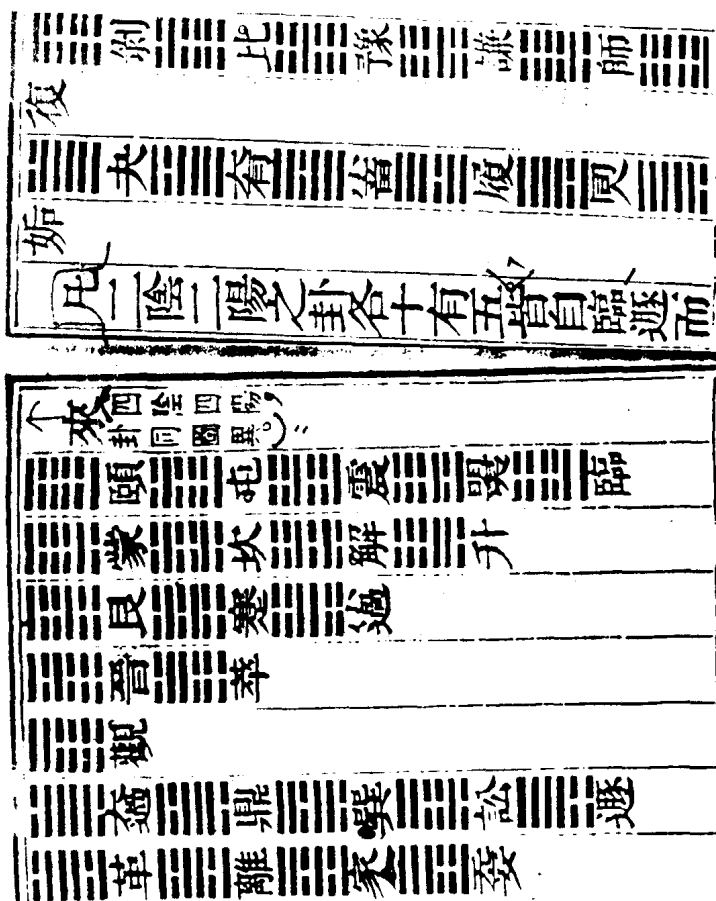 ䷖剝䷇比䷏豫䷎謙䷆師䷗
復
䷪夬䷍大有䷈小畜䷉履䷌同人䷫
姤
凡二陰二陽之卦各十有五皆自臨遯而
來四陰四陽
卦同圖異
䷚頤䷂屯䷲震䷣明夷䷒臨
䷃蒙䷜坎䷧解䷭升
䷳艮䷦蹇䷽小過
䷢晉䷬萃
䷓觀
䷛大過䷱鼎䷸巽䷅訟䷠遯
䷰革䷝離䷤家人䷘无妄